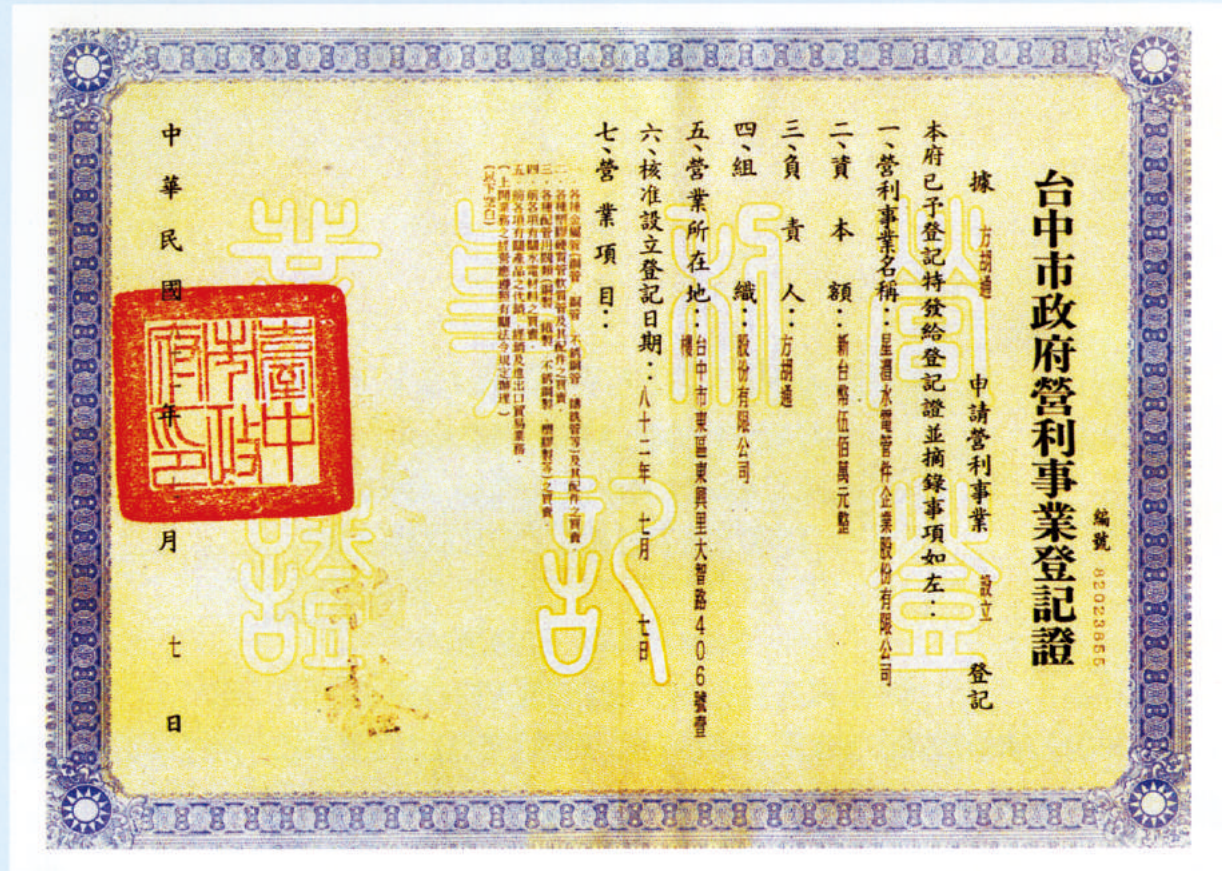 台中市政府營利事業登記證
編號 82023855
據 方胡通 申請營利事業 設立 登記
本府已予登記特發給登記證並摘錄事項如左：
一、營利事業名稱：星灃水電管件企業股份有限公司
二、資本額：新台幣伍佰萬元整
三、負責人：方胡通
四、組織：股份有限公司
五、營業所在地：台中市東區東興里大智路406號壹
樓
六、核准設立登記日期：八十二年 七月 七日
七、營業項目：
一．各種金屬管(銅管．鋼管．不銹鋼管．鑄鐵管等)及其配件之買賣．
二．各種塑膠硬質管軟質管及其配件之買賣．
三．各種配管用閥類(銅製．鐵製．不銹鋼製．塑膠製等)之買賣．
四．前各項有關水電材料之買賣．
五．前各項有關產品之代銷．經銷及進出口貿易業務．
(上開業務之經營應遵照有關法令規定辦理．)
(以下空白)
中華民國 年 七月 七日
臺中市政府印
營利事業登記證